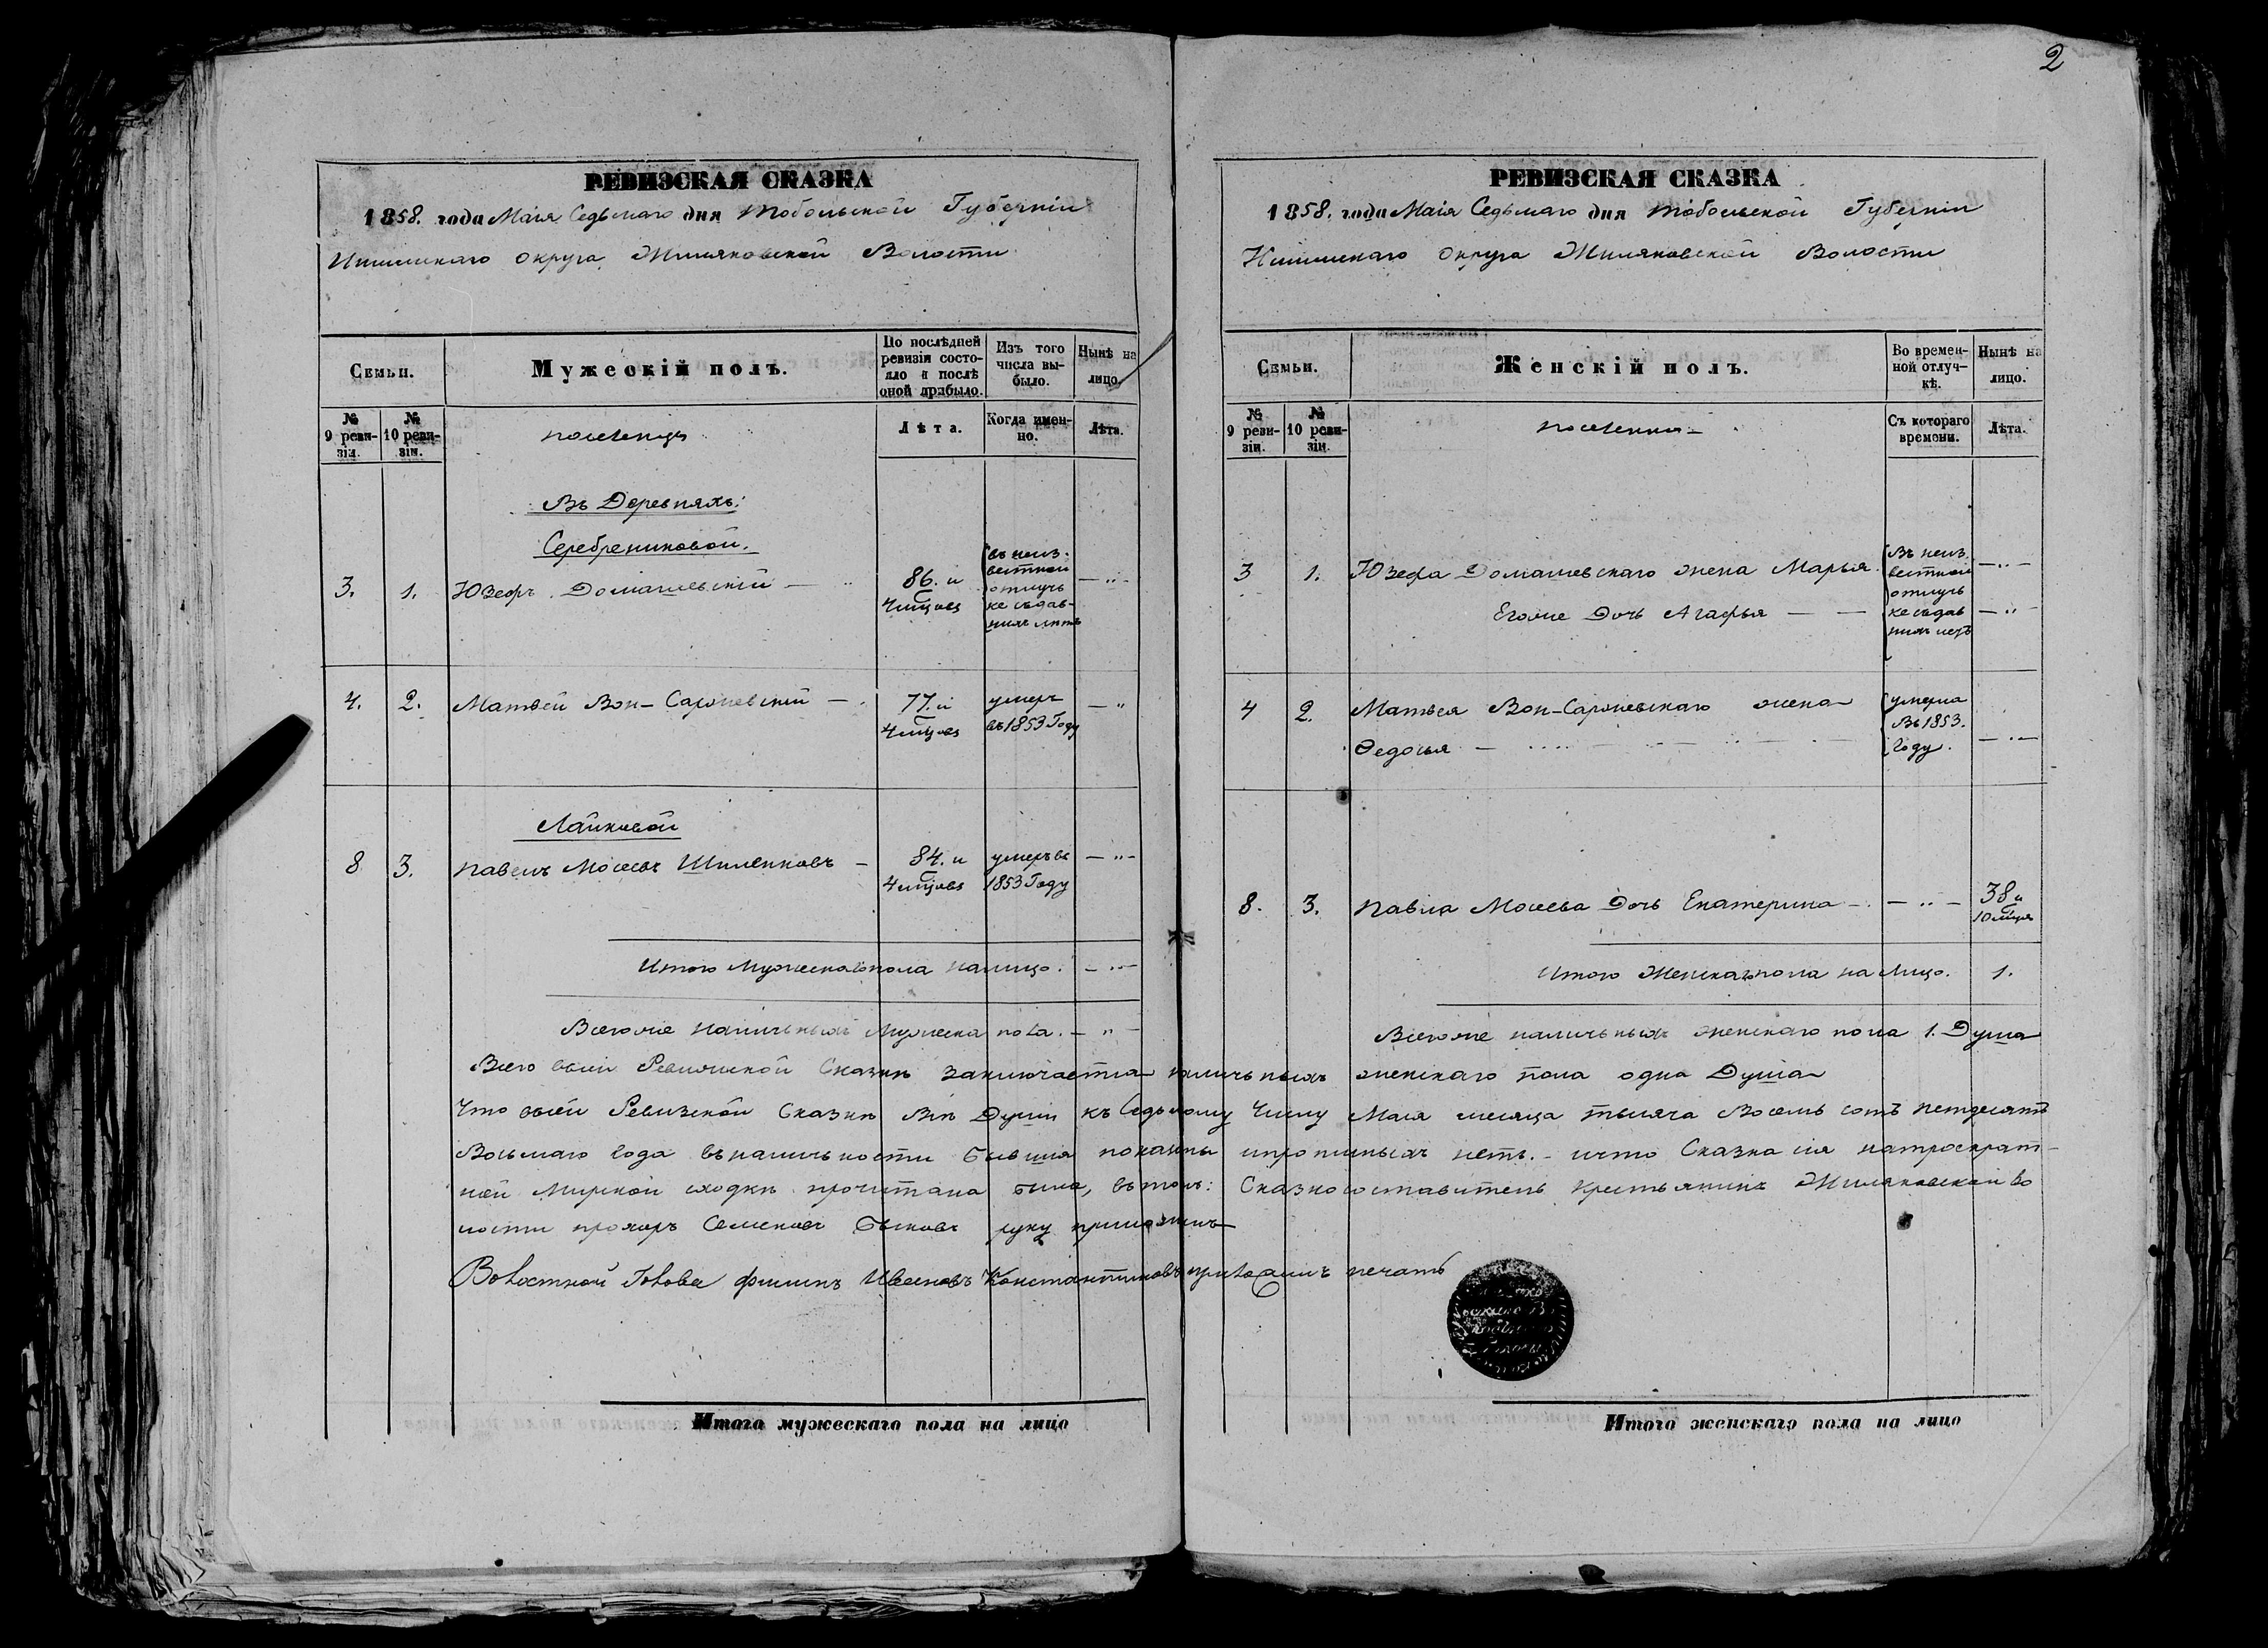 2
РЕВИЗСКАЯ СКАЗКА
1858. года Маія Седьмаго дня Тобольской Губерніи
Ишимскаго округа Жиляковской Волости
Семьи.
Мужескій полъ.
По послѣдней ревизіи состояло и послѣ оной прибыло.
Изъ того числа выбыло.
Нынѣ на лицо.
№ 9 ревизіи.
№ 10 ревизіи.
поселенцъ
Лѣта.
Когда именно.
Лѣта.
Въ Деревняхъ:
Серебрениковой.
3. 1. Юзефъ Домашевскій — 86. и 4 мцовъ
въ неиз-
вестной
отлуч
ке съ дав-
нихъ летъ
— " —
4. 2. Матвей Вон-Саржевскій — 77. и 4 мцовъ
умеръ
въ 1853 Году
— "
Лайковой
8 3. Павелъ Мосеевъ Шиленковъ — 84. и 4 мцовъ
умеръ въ
1853 Году
— " —
Итого Мужескаго пола налицо. — " —
Всегоже наличныхъ Мужеска пола. — " —
РЕВИЗСКАЯ СКАЗКА
1858. года Маія Седьмаго дня Тобольской Губерніи
Ишимскаго Округа Жиляковской Волости
Семьи.
Женскій полъ.
Во временной отлучкѣ.
Нынѣ на лицо.
№ 9 ревизіи.
№ 10 ревизіи.
Съ котораго времени.
Лѣта.
3 1. Юзефа Домашевскаго жена Марья — " —
Егоже Дочь Агафья — — — " —
Въ неиз
вестной
отлуч
ке съ дав
нихъ летъ
4 2. Матвея Вон-Саржевскаго жена
Федосья — — " —
умерла
Въ 1853.
Году.
8. 3. Павла Мосеева Дочь Екатерина — — " — 38 и 10 мцов
Итого Женскаго пола на Лицо. 1.
Всегоже наличныхъ женскаго пола 1. Душа
Всего всей Ревизской Сказки заключается наличныхъ женскаго пола одна Душа
Что всей Ревизской Сказке Все Души къ Седьмому Числу Маія месяца тысяча Восемь сотъ петдесятъ
Восьмаго года въ наличности бывшія показаны ипрописныхъ нетъ. – ичто Сказка сія натроекрат-
ной Мирской сходке прочитана была, въ томъ: Сказкосоставитель Крестьянинъ Жиляковской во
лости Прохоръ Семеновъ Быковъ руку приложилъ
Волостной Голова Филипъ Ивановъ Константиновъ приложилъ печать
Итого мужескаго пола на лицо
Итого женскаго пола на лицо